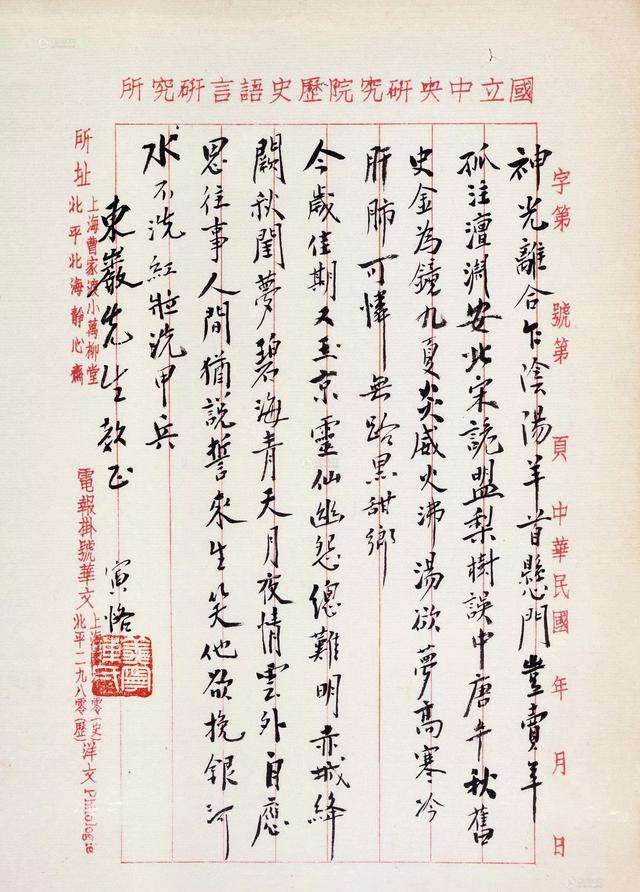 國立中央研究院歷史語言研究所
字第 號第 頁 中華民國 年 月 日
神光離合乍陰陽羊首懸門豈賣羊
孤注澶淵安北宋詭盟梨樹誤中唐千秋舊
史金為鏡九夏炎威火沸湯欲夢高寒冷
肝肺可憐無路黑甜鄉
今歲佳期又玉京靈仙幽怨總難明赤城絳
闕秋閨夢碧海青天月夜情雲外自應
思往事人間猶說誓來生笑他欲挽銀河
水不洗紅妝洗甲兵
東巖先生教正 寅恪
所址
上海曹家渡小萬柳堂
北平北海靜心齋
電報掛號華文
上海 零一(史)
北平二一九八零(歷)
洋文 Philologie